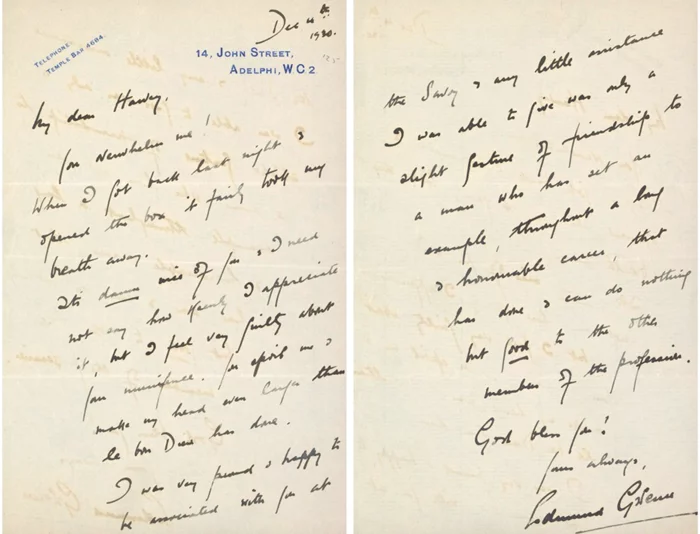 Dec 4th
1930.
TELEPHONE:
TEMPLE BAR 4694.
14, JOHN STREET,
ADELPHI, W.C.2.
My dear Harvey.
You overwhelm me!
When I got back last night &
opened the box it fairly took my
breath away.
Its damn nice of you & I need
not say how keenly I appreciate
it, but I feel very guilty about
your munificence. You spoil me &
make my head even larger than
le bon Dieu has done.
I was very proud & happy to
be associated with you at
the Savoy & any little assistance
I was able to give was only a
slight gesture of friendship to
a man who has set an
example, throughout a long
& honourable career, that
has done & can do nothing
but good to the other
members of the profession.
God bless you!
Yours always,
Edmund